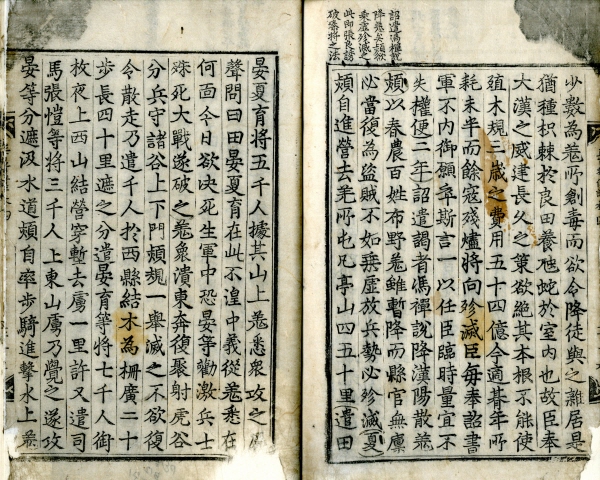 詔遣馮禪說
降羌矣熲欲
乘虛殄滅之
此即張良誘
破秦將之法
少數為羌所創毒而欲令降徒與之雜居是
猶種枳棘於良田養虺蛇於室內也故臣奉
大漢之威建長久之策欲絕其本根不能使
殖本規三歲之費用五十四億今適朞年所
耗未半而餘寇殘燼將向殄滅臣每奉詔書
軍不內御願卒斯言一以任臣臨時量宜不
失權便二年詔遣謁者馮禪說降漢陽散羌
熲以春農百姓布野羌雖暫降而縣官無廩
必當復為盜賊不如乘虛放兵勢必殄滅夏
熲自進營去羌所屯凡亭山四五十里遣田
晏夏育將五千人據其山上羌悉衆攻之
聲問曰田晏夏育在此不湟中義從羌悉在
何面今日欲决死生軍中恐晏等勸激兵士
殊死大戰遂破之羌衆潰東奔復聚射虎谷
分兵守諸谷上下門熲規一舉滅之不欲復
令散走乃遣千人於西縣結木為柵廣二十
步長四十里遮之分遣晏育等將七千人銜
枚夜上西山結營穿塹去虜一里許又遣司
馬張愷等將三千人上東山虜乃覺之遂攻
晏等分遮汲水道熲自率步騎進擊水上羌